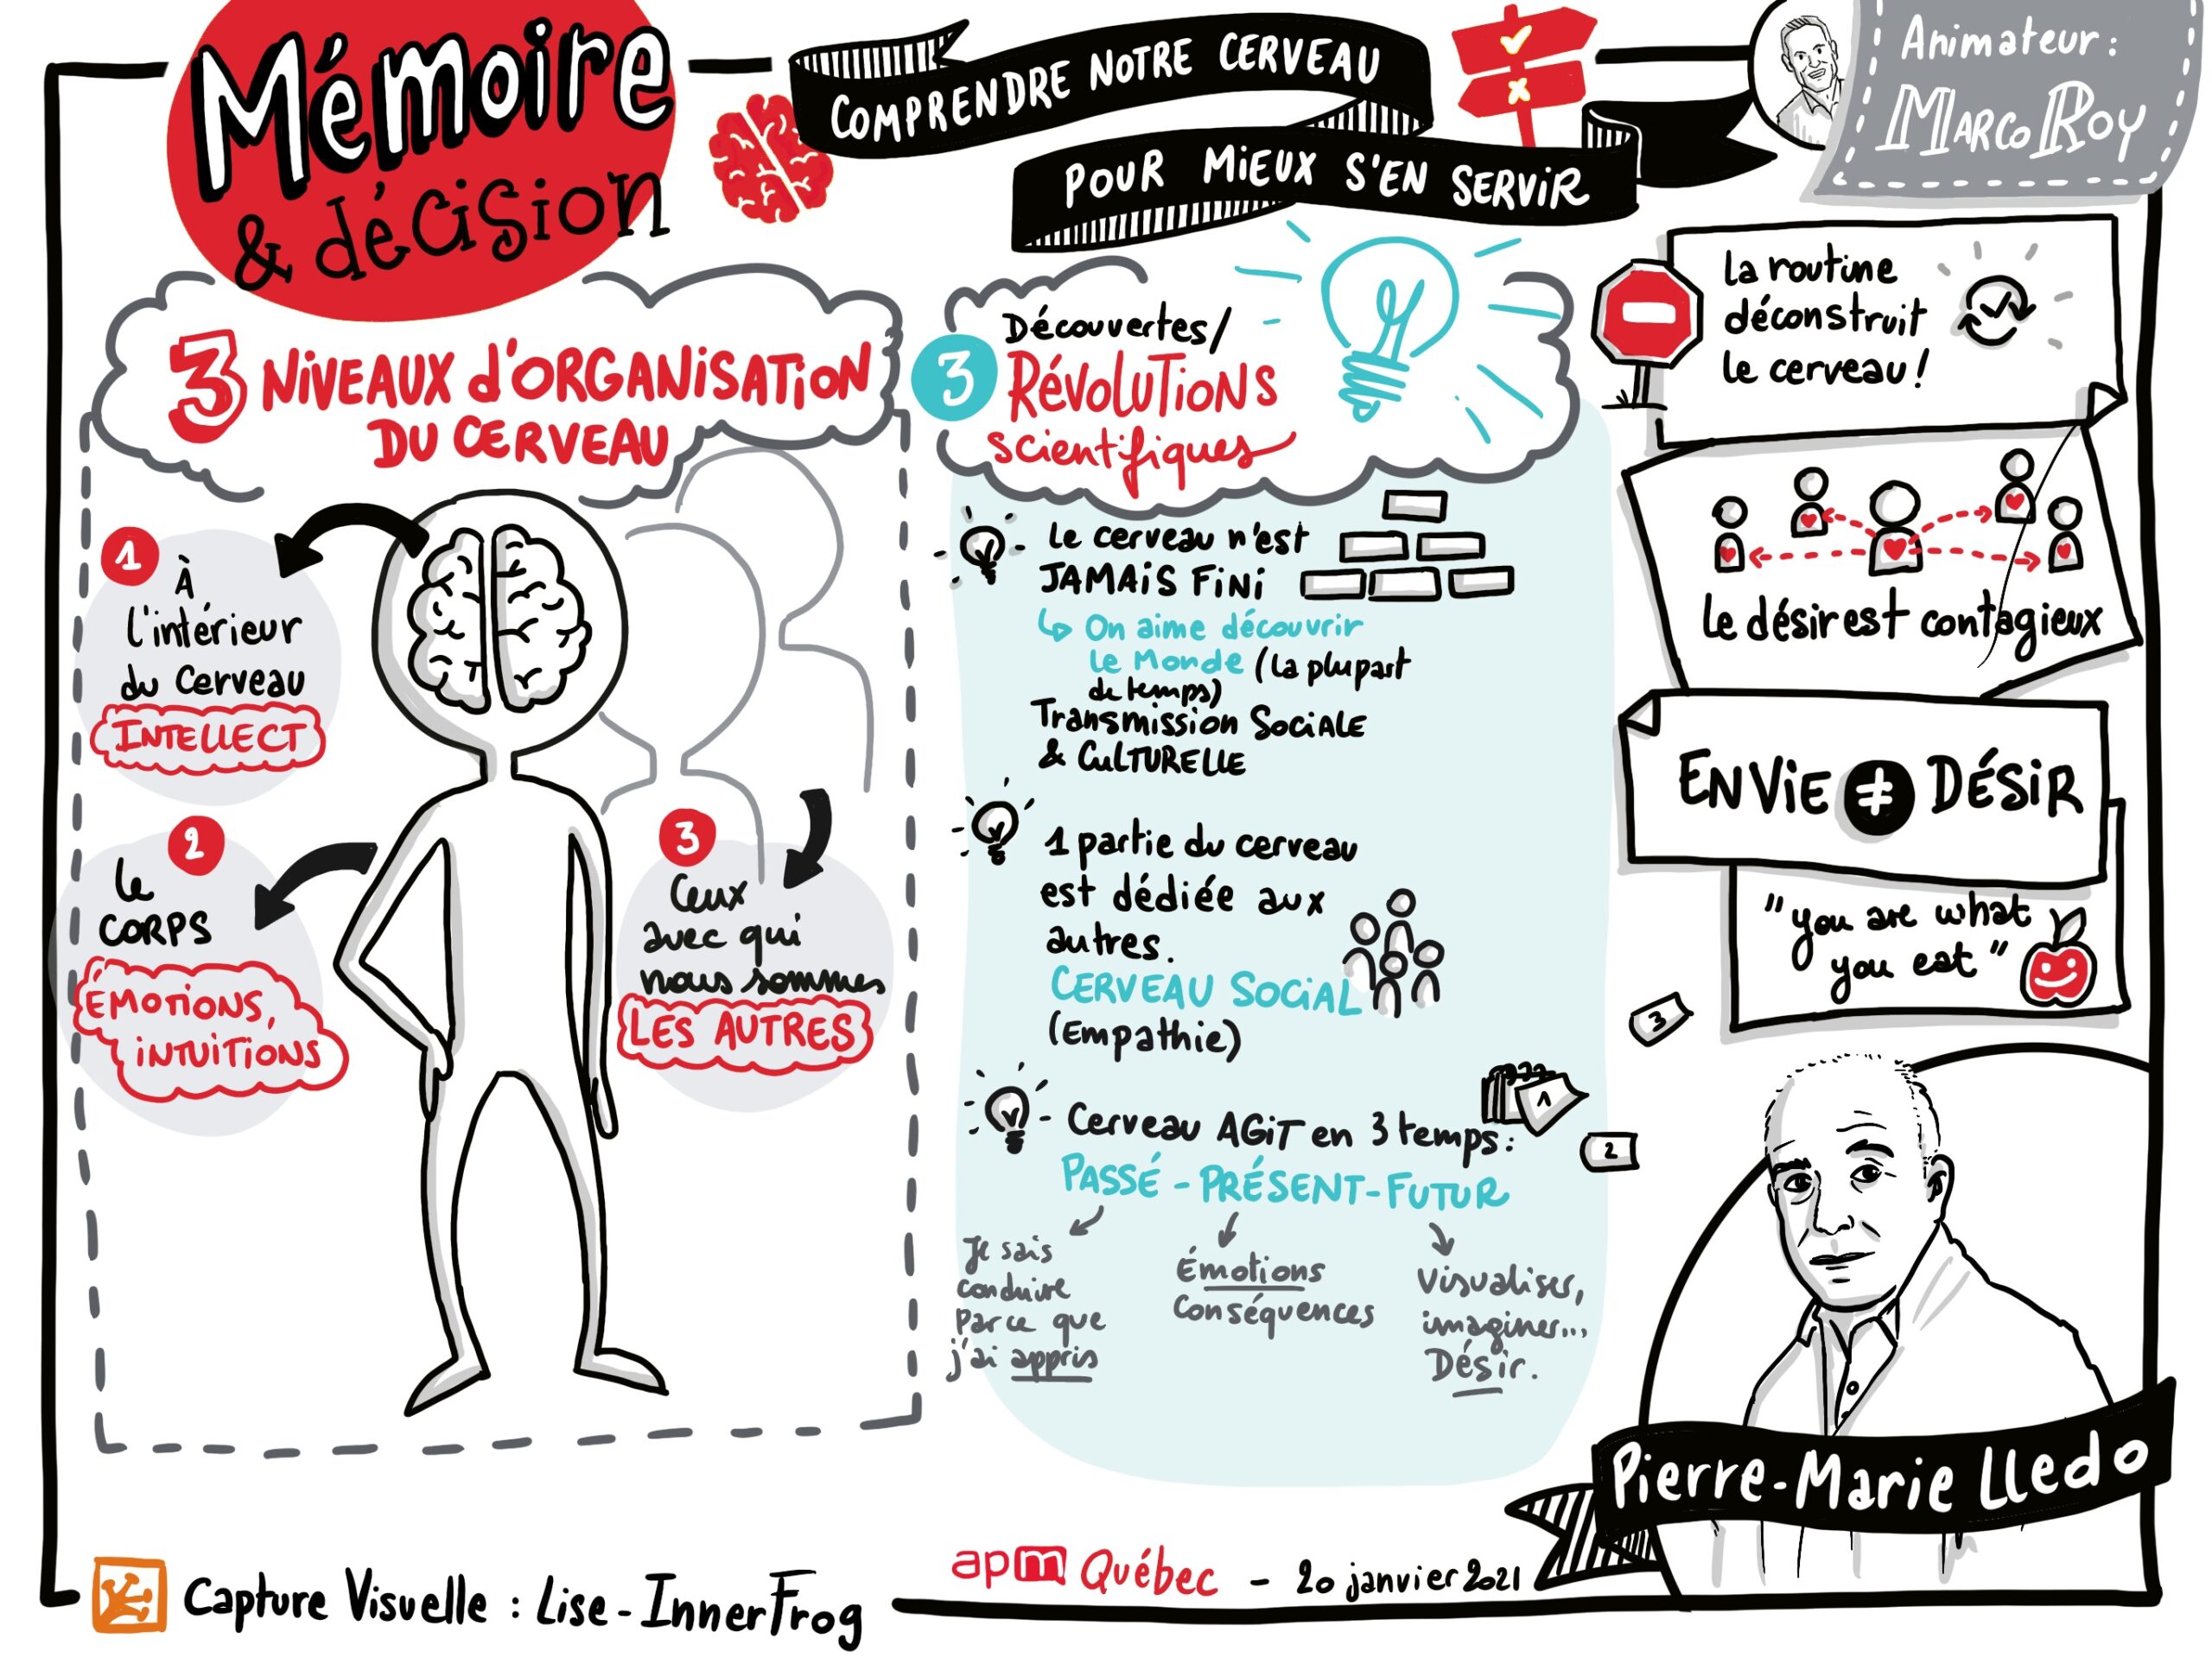 Mémoire
& décision
COMPRENDRE NOTRE CERVEAU
POUR MIEUX S'EN SERVIR
Animateur :
MARCO ROY
3 NIVEAUX d'ORGANISATION
DU CERVEAU
1
À
l'intérieur
du cerveau
INTELLECT
2
Le
CORPS
ÉMOTIONS,
INTUITIONS
3
Ceux
avec qui
nous sommes
LES AUTRES
3
Découvertes/
RÉVOLUTIONS
scientifiques
Le cerveau n'est
JAMAIS FINI
↳ On aime découvrir
Le Monde (La plupart
de temps)
Transmission SOCIALE
& CULTURELLE
1 partie du cerveau
est dédiée aux
autres.
CERVEAU SOCIAL
(Empathie)
Cerveau AGIT en 3 temps :
PASSÉ - PRÉSENT - FUTUR
Je sais
conduire
Parce que
j'ai appris
Émotions
Conséquences
Visualiser,
imaginer...
Désir.
1
2
3
La routine
déconstruit
le cerveau !
Le désir est contagieux
ENVIE ≠ DÉSIR
"you are what
you eat"
Pierre-Marie Lledo
Capture Visuelle : Lise - InnerFrog
apm Québec - 20 janvier 2021